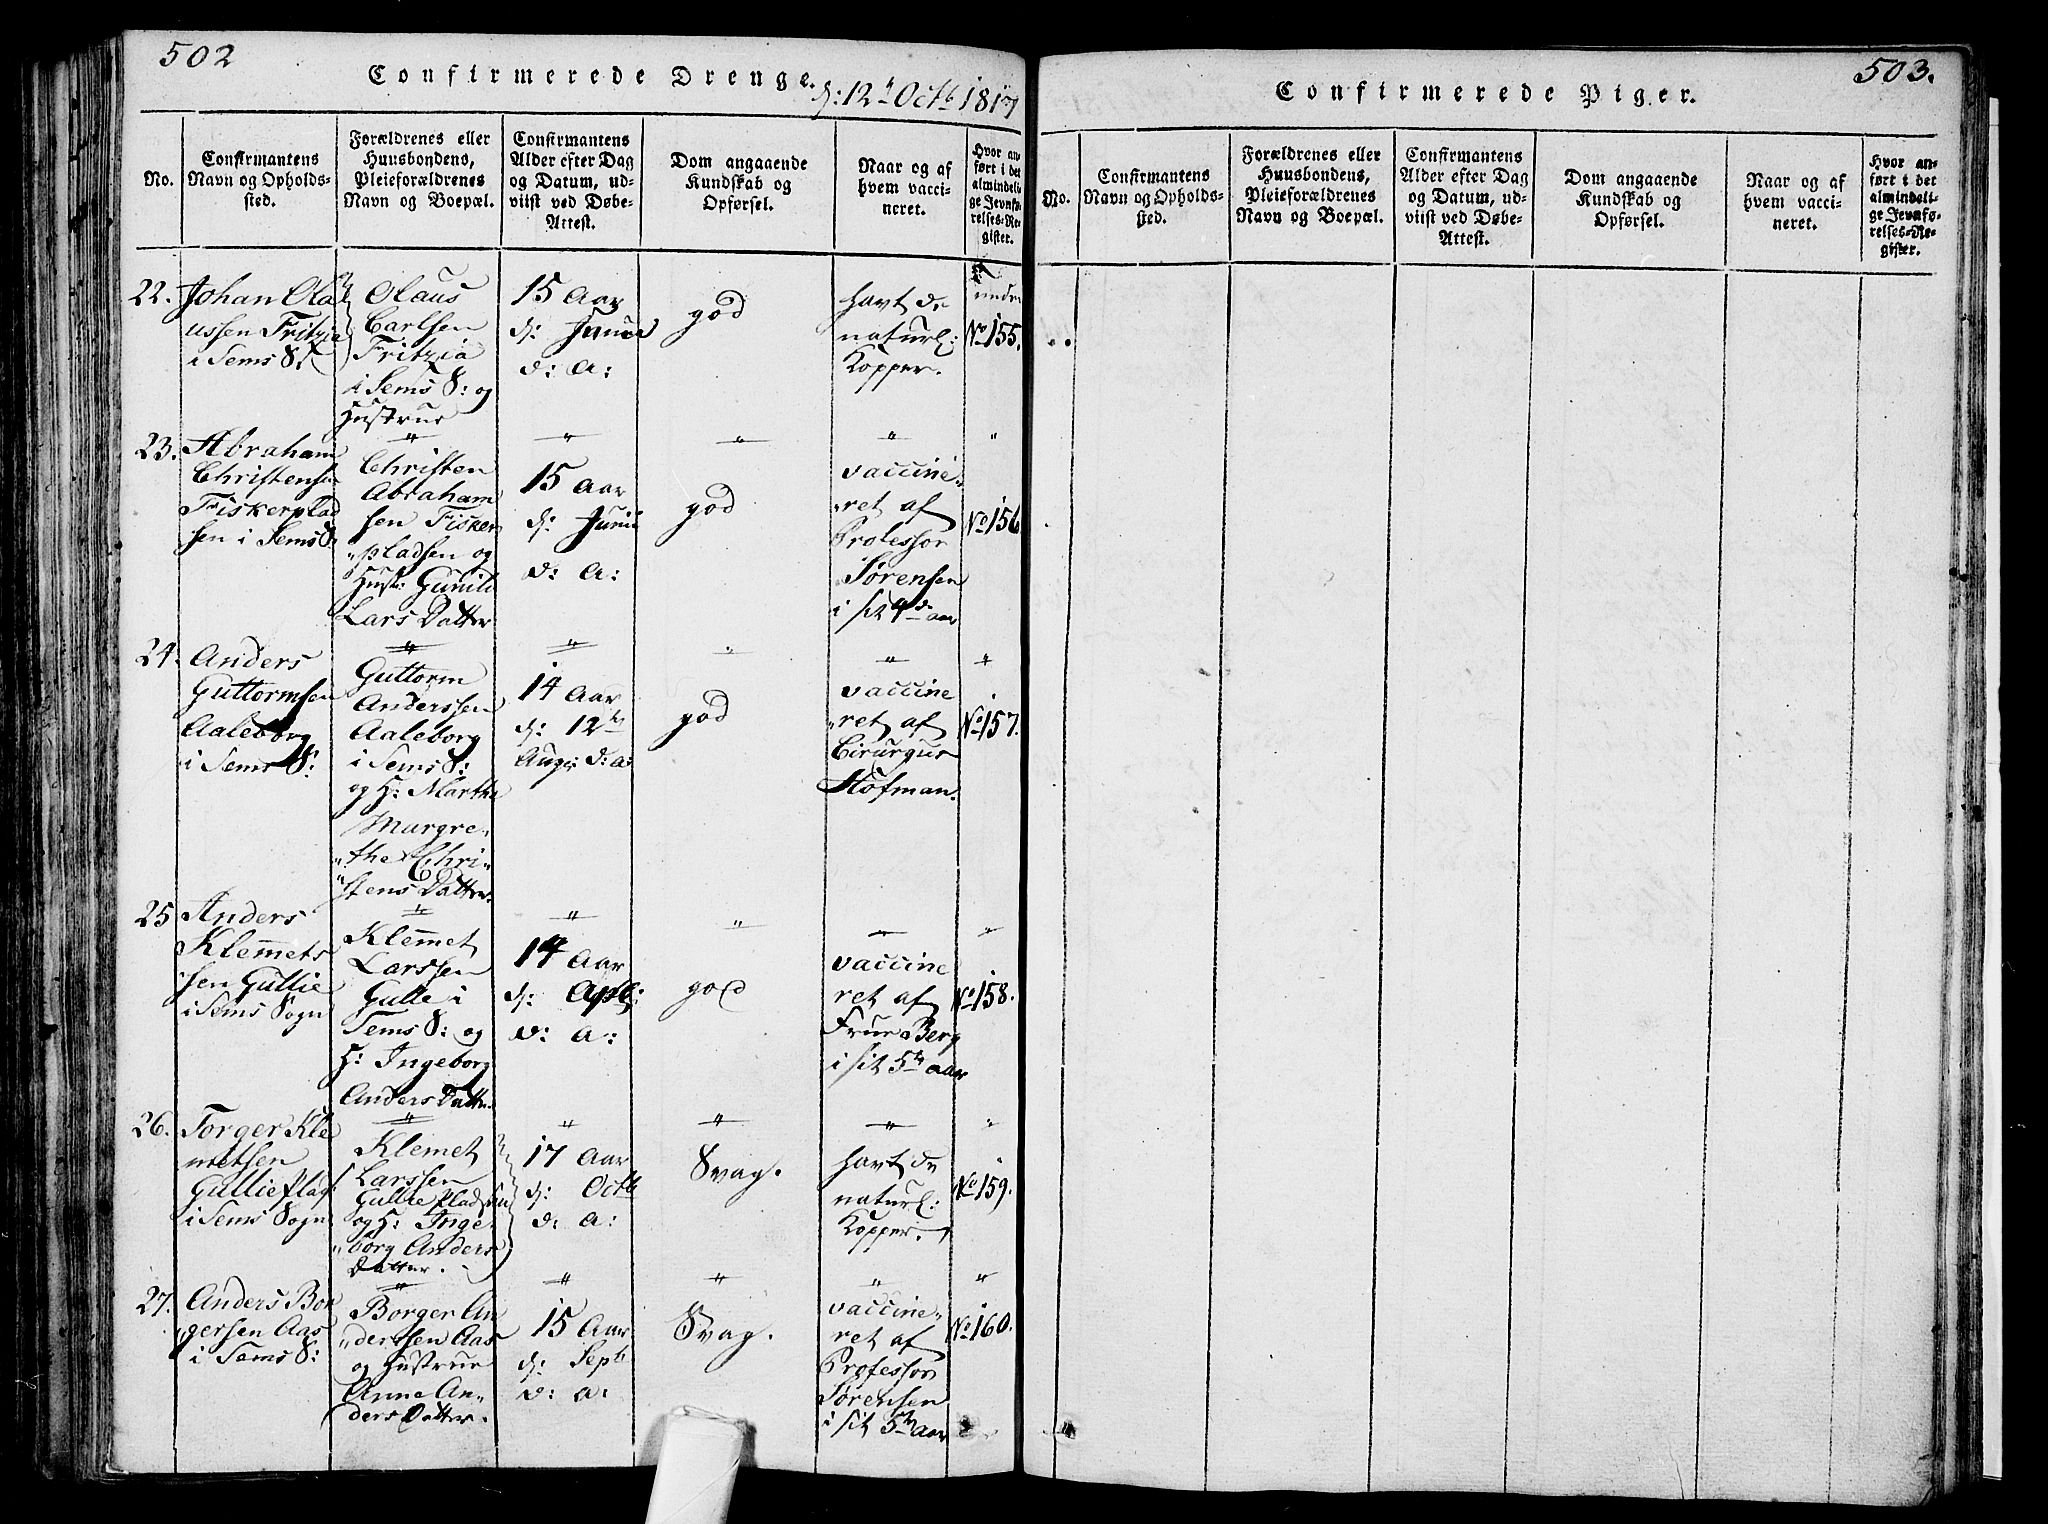 502
Confirmerede Drenge. d: 12t Octb 1817
No.
Confirmantens
Navn og Opholds-
sted.
Forældrenes eller
Huusbondens,
Pleieforældrenes
Navn og Boepæl.
Confirmantens
Alder efter Dag
og Datum, ud-
viist ved Døbe-
Attest.
Dom angaaende
Kundskab og
Opførsel.
Naar og af
hvem vacci-
neret.
Hvor an-
ført i det
almindeli-
ge Jevnfø-
relses-Re-
gister.
22.
Johan Ola
ussen Fritzia
i Sems S:
Olaus
Carlsen
Fritzia
i Sems S: og
Hustrue
15 Aar
d: Junii
d: a:
god
havt de
naturl:
Kopper.
under
No 155.
23.
Abraham
Christensen
Fiskerplad
sen i Sems S:
Christen
Abraham
sen Fisker
"pladsen og
Hust: Gunild
Lars Datter
15 Aar
d: Junii
d: a:
god
vaccine
"ret af
Professor
Sørensen
i sit 4de aar
No 156
24.
Anders
Guttormsen
Aaleborg
i Sems S:
Guttorm
Anderssen
Aaleborg
i Sems S:
og H: Marthe
Margre"
"the Chri"
"stens Datter.
14 Aar
d: 12te
Augs d: a:
god
vaccine
"ret af
Cirurgus
Hofman.
No 157.
25
Anders
Klemets
sen Gullie
i Sems Sogn
Klemet
Larssen
Gulle i
Sems S: og
H: Ingeborg
Anders Datter.
14 Aar
d: Apll:
d: a:
god
vaccine
ret af
Frue Berg
i sit 5te aar
No 158.
26.
Torger Kle
metsen
Gullie Plads
i Sems Sogn
Klemet
Larssen
Gullie Pladsen
og H: Inge
"borg Anders
Datter.
17 Aar
d: Octb
d: a:
Svag.
havt de
naturl:
Kopper.
No 159.
27.
Anders Bor
"gersen Aas
i Sems S:
Borger An
"derssen Aas
og Hustrue
Anne An"
ders Datter.
15 Aar
d: Septb
d: a:
Svag.
vaccine"
ret af
Professor
Sørensen
i sit 5te Aar
No 160.
503.
Confirmerede Piger.
No.
Confirmantens
Navn og Opholds-
sted.
Forældrenes eller
Huusbondens,
Pleieforældrenes
Navn og Boepæl.
Confirmantens
Alder efter Dag
og Datum, ud-
viist ved Døbe-
Attest.
Dom angaaende
Kundskab og
Opførsel.
Naar og af
hvem vacci-
neret.
Hvor an-
ført i det
almindeli-
ge Jevnfø-
relses-Re-
gister.